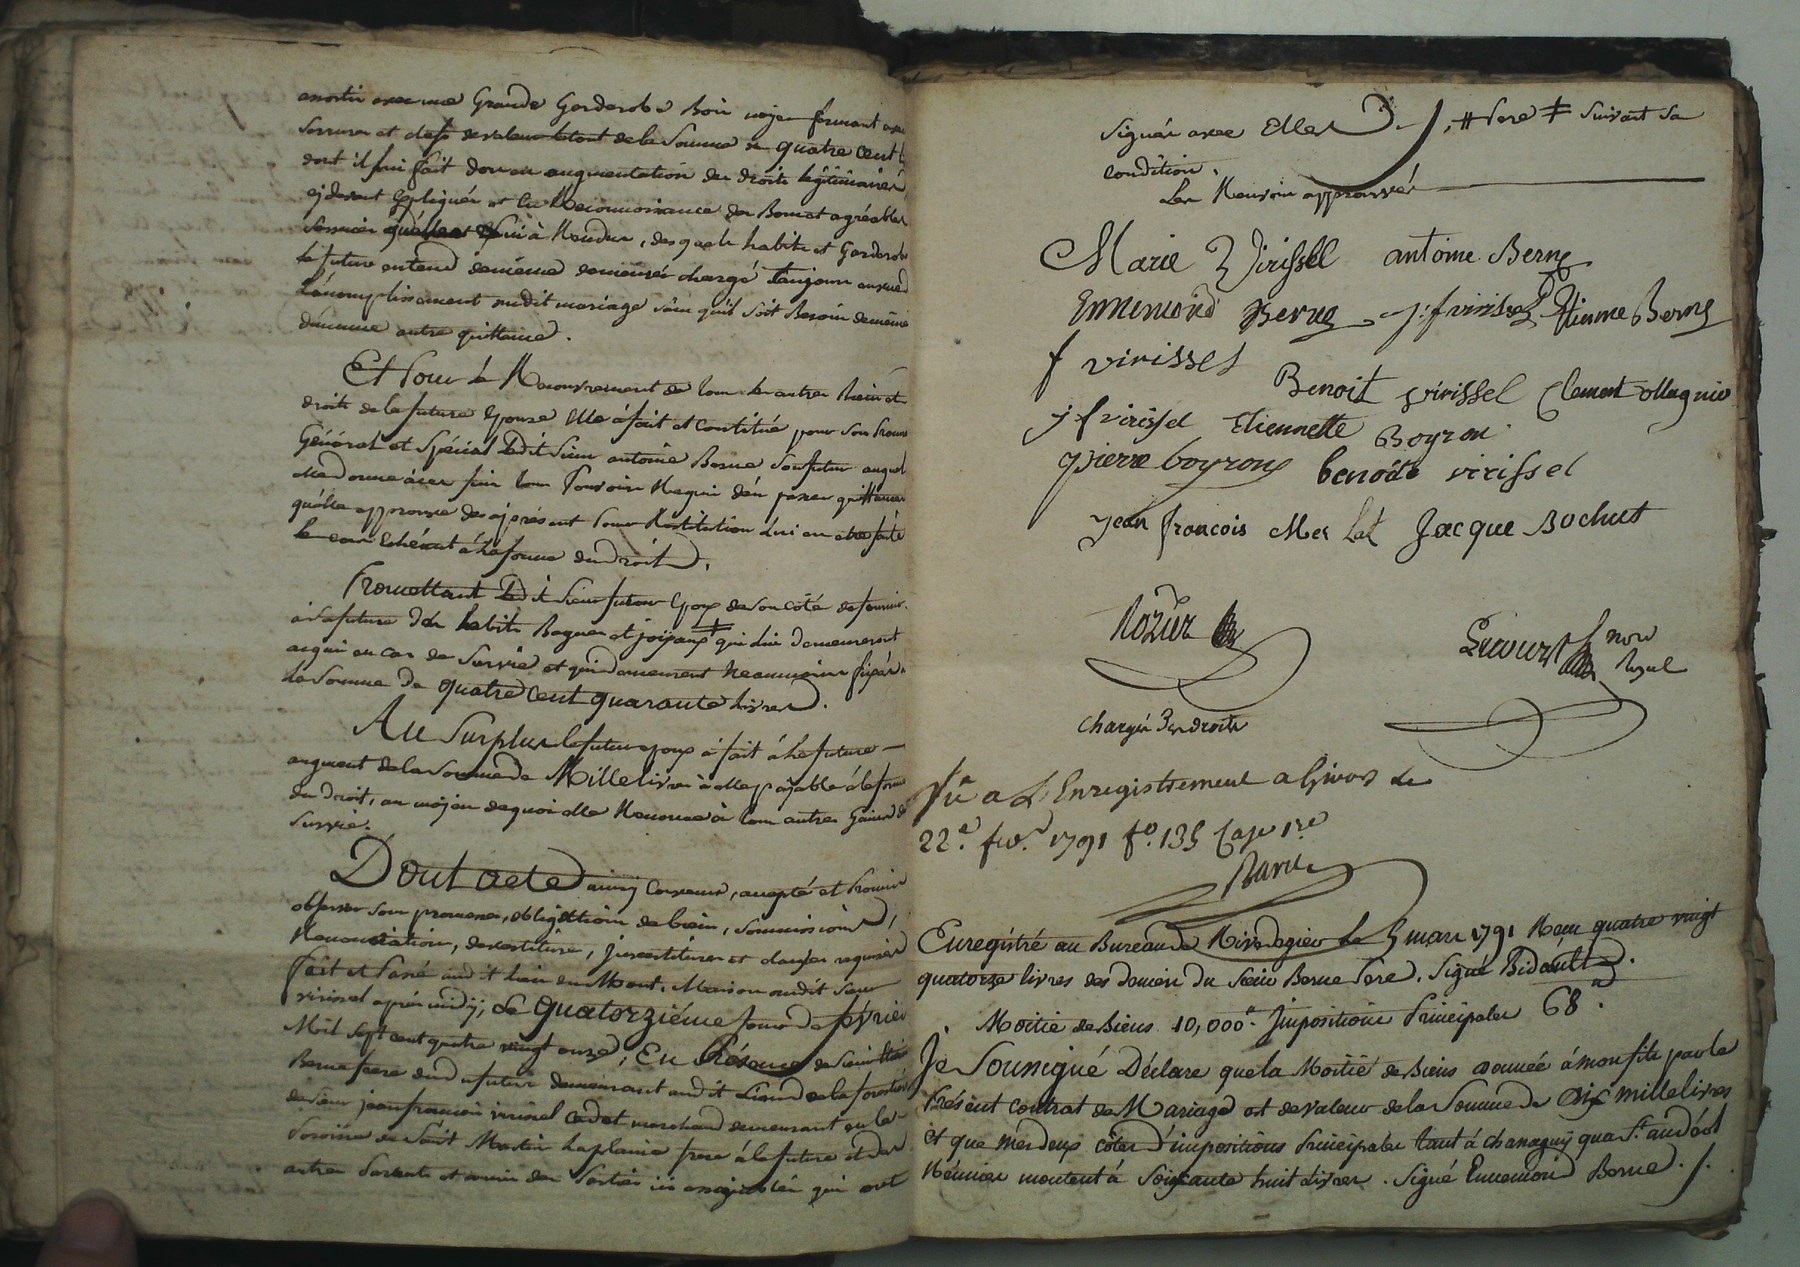 assortis avec une Grande Garderobe Bois noyer fermant avec
serrure et clefs de valeur le tout de la Somme de quatre cent
dont il lui fait don en augmentation des droits légitimaires
cydevant expliqués et la Reconnoissance des Bons et agréables
Services à Rendre, desquels habits et Garderobe
le futur entend demême demeurer chargé Toujours ensuite
L'accomplissement dudit mariage sans qu'il soit Besoin demême
d'aucune autre quittance.
Et Pour le Recouvrement de tous les autres Biens et
droits de la future Epouse Elle a fait et Constitué pour son Procureur
Général et Spécial Ledit Sieur antoine Berne Son futur auquel
elle donne à ces fins tous Pouvoirs Requis d'en passer quittances
qu'elle approuve dès àprésent Pour Restitution Lui en être faite
le cas Echéant à la forme du Droit.
Promettant Ledit Sieur futur Epoux de son côté de fournir
à la future des habits Bagues et joyaux ‡ qui lui demeureront
acquis en cas de Survie et qui demeurent Néanmoins fixés à
la Somme de quatre cent quarante livres.
Au Surplus le futur epoux a fait à la future
augment de la Somme de Mille livres à elle payable à la forme
du droit, au moyen de quoi elle Renonce à tous autres Gains de
Survie.
Dont acte ainsy Convenu, accepté et Promis
observer sous promesses, obligations de biens, soummissions,
Renonciation, devestiture, Investitures et clauses requises
fait et Passé audit lieu du Mont, Maison dudit Sieur
virissel après midy, Le quatorzième Jour de février
Mil sept cent quatre vingt onze, En Présence de Sieur
Berne frere dud. futur demeurant audit Lieu de la forestière
de Sieur jean françois virissel cadet marchand demeurant en la
Paroisse de Saint Martin Laplaine frere à la future et des
autres Parents et amis des Parties ici assemblés qui ont
Signés avec Elles ./. ⧧ Pere ‡ Suivant Sa
condition.
Les Renvois approuvés
Marie Virissel antoine Berne
Ennemond Berne j: f virissel Etienne Berne
f virissel
Benoit virissel Clement ollagnier
j f virissel Etiennette Boyron
pierre boyron benoite virissel
jean francois Merlat Jacque Bochut
Rozier
not
Royal
Chargé des droits
Vu a L'Enregistrement a Givors le
22e. fév.r 1791 f.o 135 Case 1re
Enregistré au Bureau de Rivedegier le 5 mars 1791 Reçu quatre vingt
quatorze livres des deniers du Sieur Berne Pere. Signé Bidault.
Moitié de Biens 10,000tt. Impositions Principales 68tt.
Je Soussigné Déclare que la Moitié de Biens donnée à mon fils par le
Présent contrat de Mariage est de valeur de la Somme de Dix mille livres
et que mes deux côtes d'impositions Principales tant à Chanagny qua St. andéol
Réunies montent à Soixante huit Livres. Signé Ennemond Berne./.